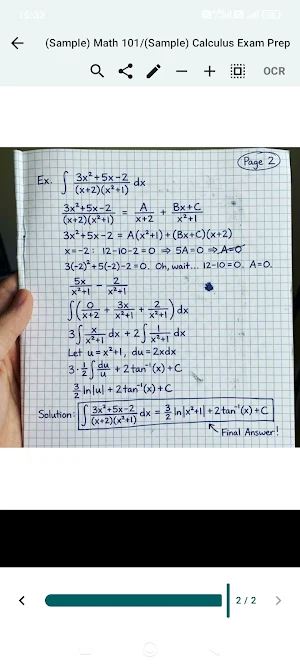 (Sample) Math 101/(Sample) Calculus Exam Prep
OCR
Page 2
Ex. ∫ (3x²+5x-2)/((x+2)(x²+1)) dx
(3x²+5x-2)/((x+2)(x²+1)) = A/(x+2) + (Bx+C)/(x²+1)
3x²+5x-2 = A(x²+1)+(Bx+C)(x+2)
x=-2: 12-10-2=0 ⇒ 5A=0 ⇒ A=0
3(-2)²+5(-2)-2=0. Oh, wait... 12-10=0. A=0.
5x/(x²+1) - 2/(x²+1)
∫(0/(x+2) + 3x/(x²+1) + 2/(x²+1)) dx
3∫ x/(x²+1) dx + 2∫ 1/(x²+1) dx
Let u=x²+1, du=2xdx
3·1/2 ∫ du/u + 2tan⁻¹(x)+C
3/2 ln|u| + 2tan⁻¹(x)+C
Solution: ∫ (3x²+5x-2)/((x+2)(x²+1)) dx = 3/2 ln|x²+1| + 2tan⁻¹(x)+C
Final Answer!
2 / 2